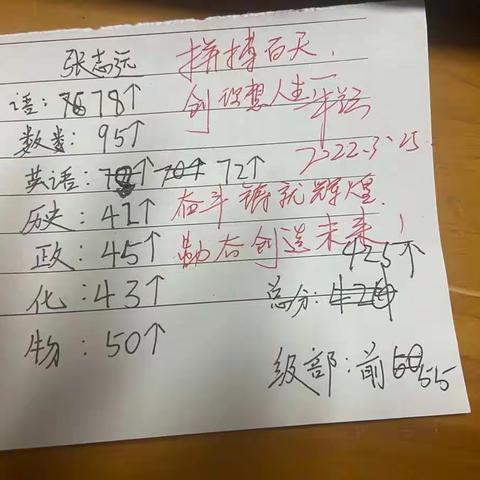 张志远
语：78↑
数学：95↑
英语：72↑
历史：42↑
政：45↑
化：43↑
物：50↑
拼搏百天，
创理想人生！
2022.3.25
奋斗铸就辉煌.
勤奋创造未来！
425↑
总分：420
级部：前60 55